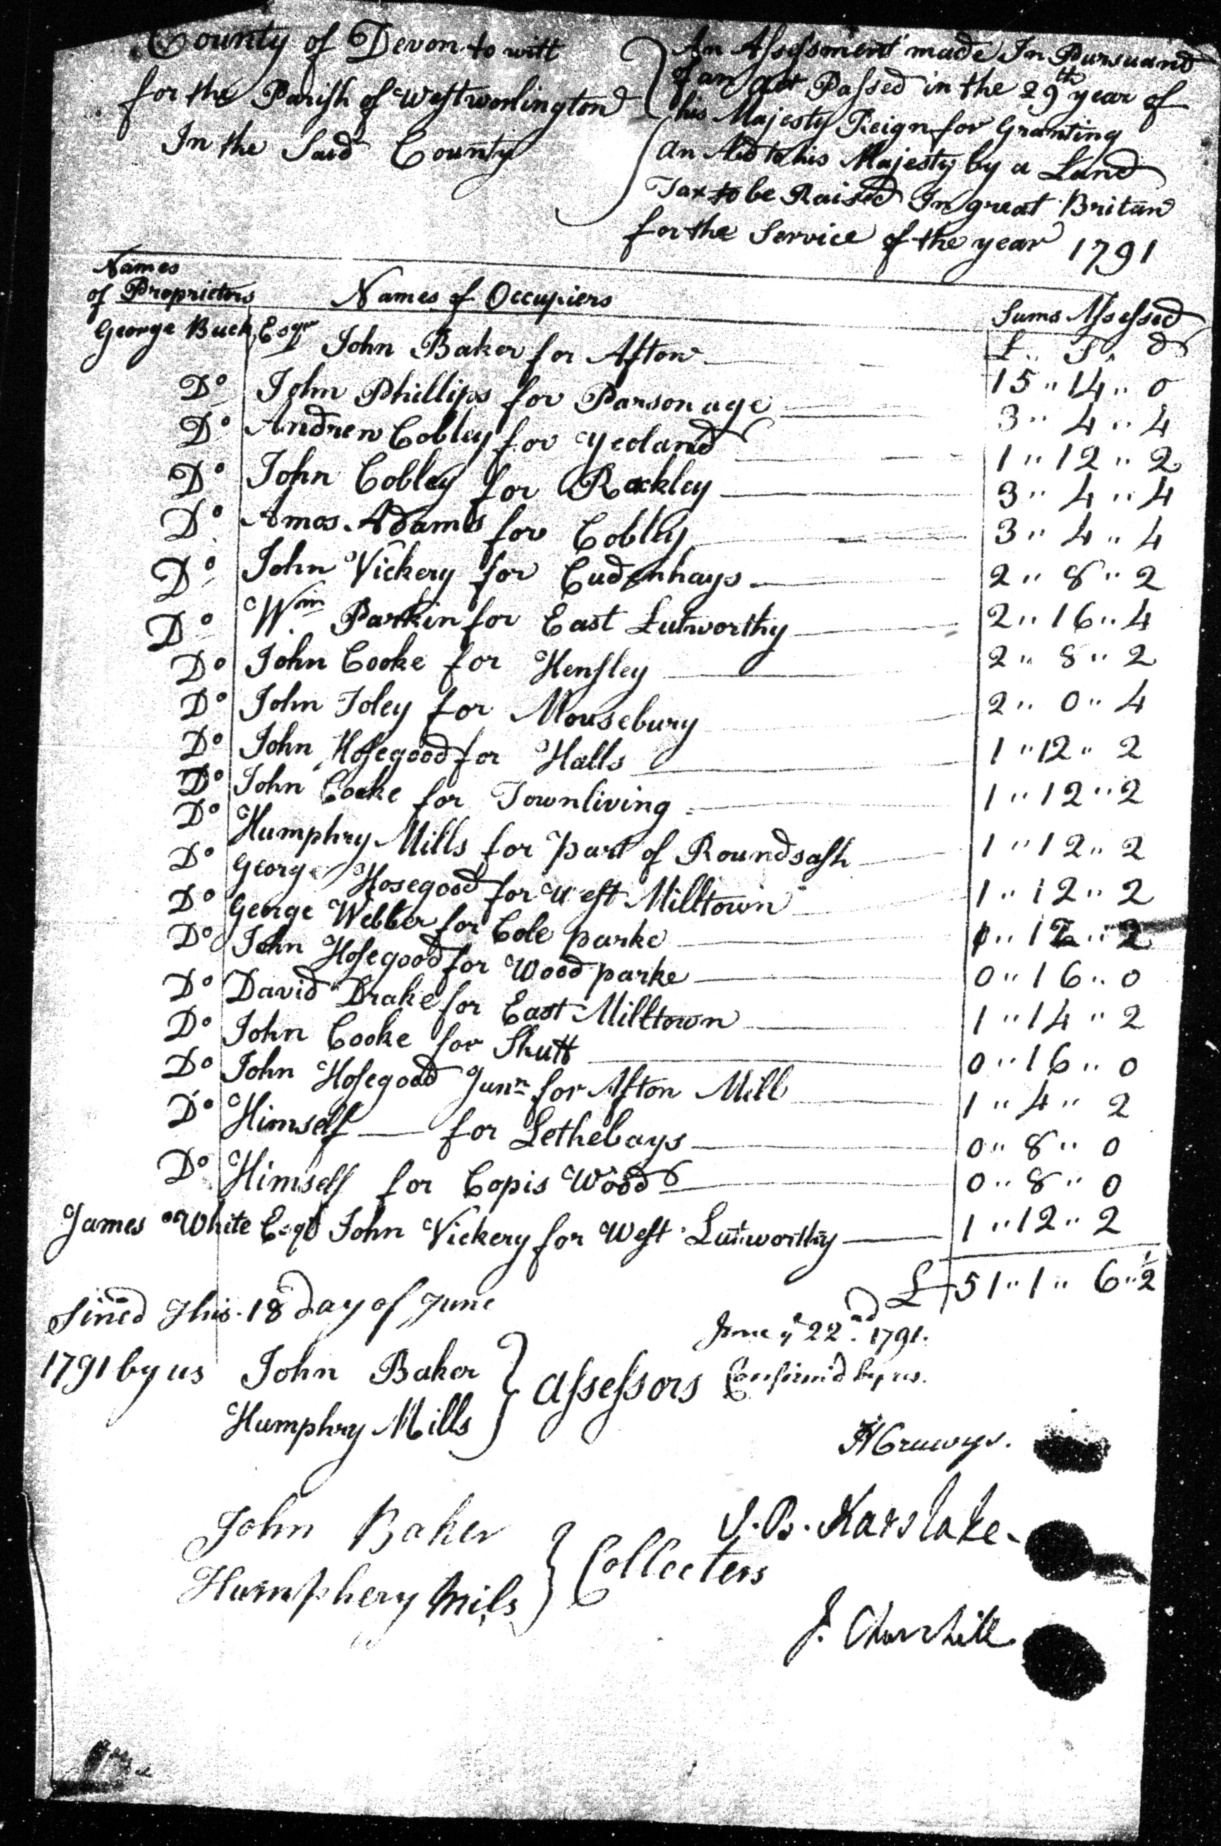 County of Devon to witt
for the Parish of Westworlington
In the Said County
An Assessment made In Pursuand
of an act Passed in the 29th year of
his Majesty Reign for Granting
an Aid to his Majesty by a Land
Tax to be Raised In great Britan
for the Service of the year 1791
Names
of Proprietors Names of Occupiers Sums Assessed
£ S d
George Buck Esqr John Baker for Afton 15 14 0
Do John Phillips for Parsonage 3 4 4
Do Andrew Cobley for Yeoland 1 12 2
Do John Cobley for Rockley 3 4 4
Do Amos Adams for Cobley 3 4 4
Do John Vickery for Cudenhays 2 8 2
Do Wm Parkin for East Lutworthy 2 16 4
Do John Cooke for Hensley 2 8 2
Do John Foley for Mousebury 2 0 4
Do John Hosegood for Halls 1 12 2
Do John Cooke for Townliving 1 12 2
Do Humphry Mills for part of Roundsash 1 12 2
Do George Hosegood for West Milltown 1 12 2
Do George Webber for Cole parke 1 12 2
Do John Hosegood for Wood parke 0 16 0
Do David Drake for East Milltown 1 14 2
Do John Cooke for Shutt 0 16 0
Do John Hosegood Junr for Afton Mill 1 4 2
Do Himself for Lethebays 0 8 0
Do Himself for Copis Wood 0 8 0
James White Esqr John Vickery for West Lutworthy 1 12 2
£ 51 1 6 ½
Sined This 18 Day of June
1791 by us John Baker
Humphry Mills
assessors
June ye 22nd 1791.
Confirm'd by us.
H Cruwys.
J. B. Karslake
John Baker
Humphery Mils
Collecters
J. Churchill